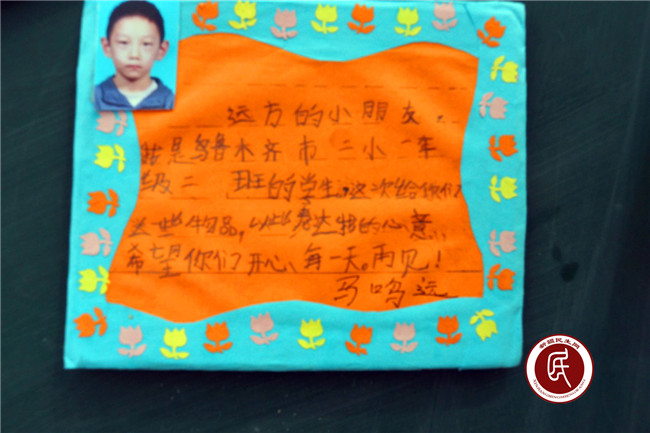 远方的小朋友，
我是乌鲁木齐市二小一年
级二班的学生，这次给你们
送些物品，以此表达我的心意，
希望你们开心每一天。再见！
马鸣远
新疆民生网